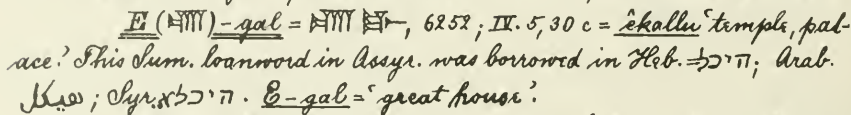 E (𒂍)-gal = 𒂍 𒃲, 6252; IV. 5, 30 c = êkallu ‘temple, pal-
ace’. This Sum. loanword in Assyr. was borrowed in Heb. היכל; Arab.
هيكل; Syr. היכלא. E-gal = ‘great house’.